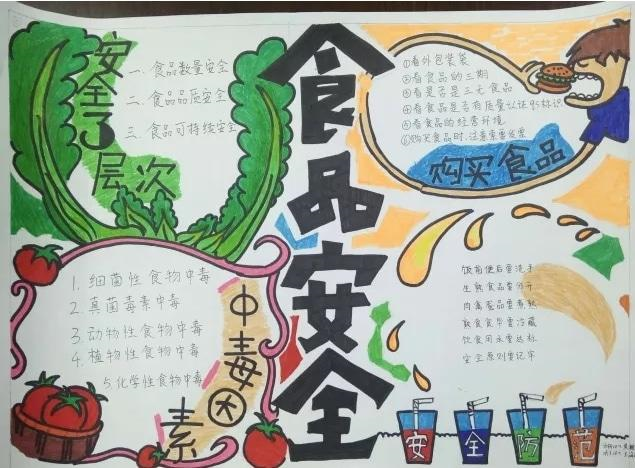 食品安全
安全3层次
一、食品数量安全
二、食品品质安全
三、食品可持续安全
①看外包装袋
②看食品的三期
③看是否是三无食品
④看食品是否有质量认证QS标识
⑤看食品的经营环境
⑥购买食品时,注意索要发票
购买食品
1. 细菌性食物中毒
2. 真菌毒素中毒
3. 动物性食物中毒
4. 植物性食物中毒
5.化学性食物中毒
中毒因素
饭前便后要洗手
生熟食品要分开
肉禽蛋品要煮熟
熟食食毕要冷藏
饮食用水要达标
安全原则要记牢
安全防范